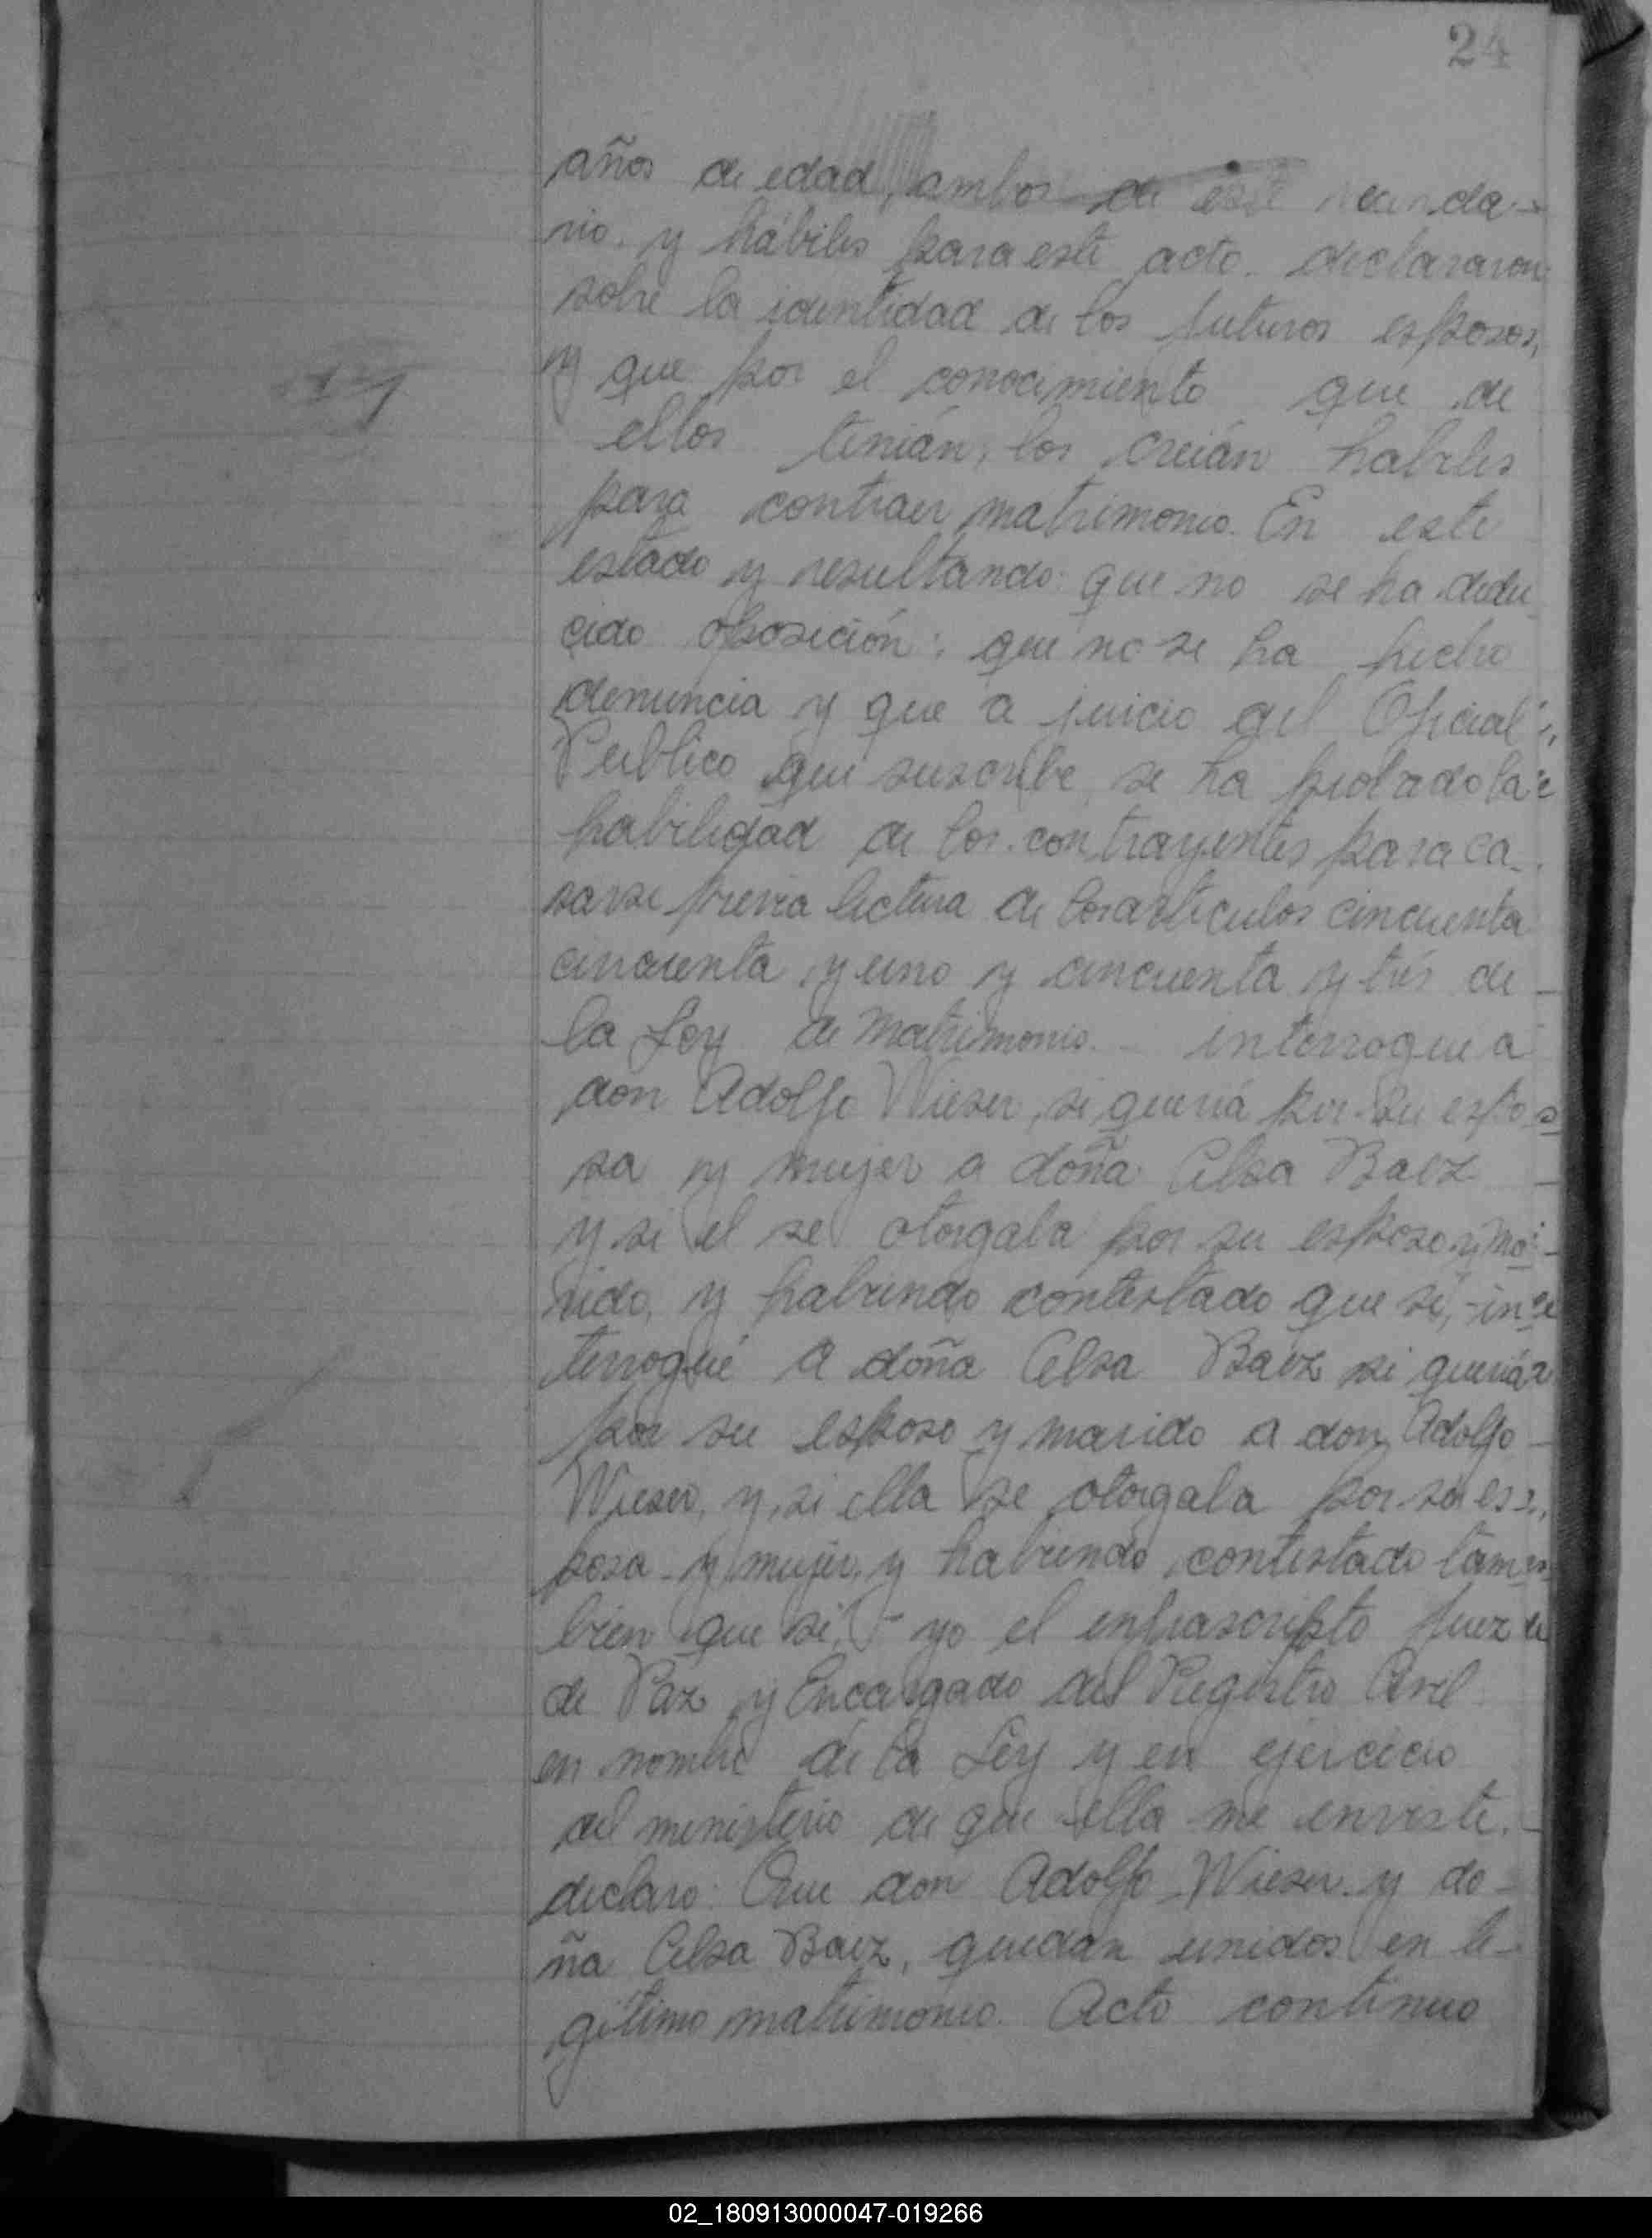 24
años de edad, ambos de este vecinda-
rio y hábiles para este acto. declararon
sobre la identidad de los futuros esposos,
y que por el conocimiento que de
ellos tenián, los creián habiles
para contraer matrimonio. En este
estado y resultando: que no se ha dedu
cido oposición; que no se ha hecho
denuncia y que a juicio del Oficial
Publico que suscribe, se ha probado la
habilidad de los contrayentes para ca-
sarse previa lectura de los articulos cincuenta
cincuenta y uno y cincuenta y trés de
la Ley de Matrimonio. interrogué a
don Adolfo Wieser, si queriá por su espo
sa y mujer a doña Celsa Baez
y si el se otorgaba por su esposo y ma-
rido, y habiendo contestado que si, in
terrogué a doña Celsa Baez si queriá
por su esposo y marido a don Adolfo
Wieser, y si ella se otorgaba por su es
posa y mujer, y habiendo contestado tam
bien que si, yo el infrascripto Juez de
de Paz y Encargado del Registro Civil
en nombre de la Ley y en ejercicio
del ministerio de que ella me enviste.
declaro: Que don Adolfo Wieser y do-
ña Celsa Baez, quedan unidos en le-
gitimo matrimonio. Acto continuo
02_180913000047-019266